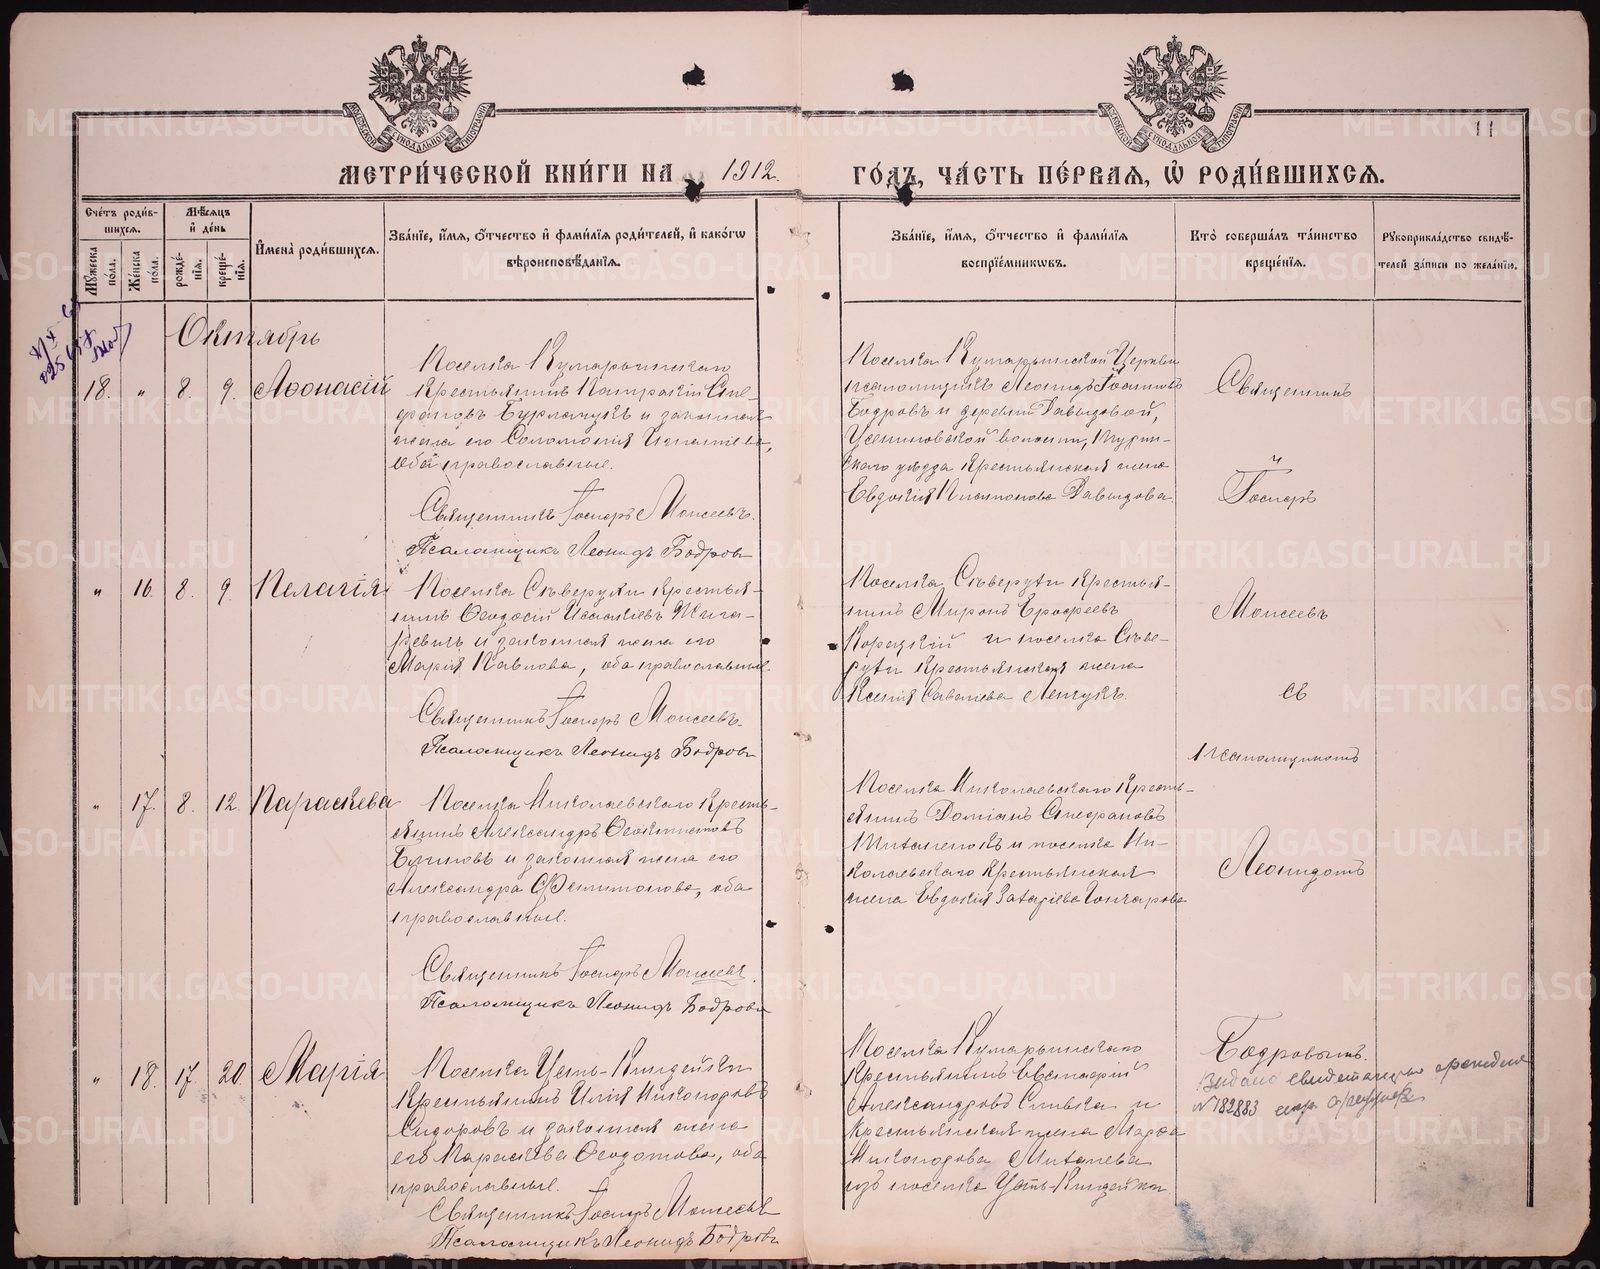 11
МЕТРИ́ЧЕСКОЙ КНИ́ГИ НА 1912. ГО́ДЪ, ЧА́СТЬ ПЕ́РВАЯ, Ѿ РОДИ́ВШИХСЯ.
Счётъ роди́в-
шихся.
Мꙋжеска по́ла.
Же́нска по́ла.
Мѣсяцъ
и де́нь
рожде́нія.
креще́нія.
Имена̀ роди́вшихся.
Зва́ніе, и́мя, ѻ́тчество и фами́лія роди́телей, и како́гѡ
вѣроисповѣ́данія.
Зва́ніе, и́мя, ѻ́тчество и фами́лія
воспріе́мникѡвъ.
Кто̀ соверша́лъ та́инство
креще́нія.
Рꙋкоприкла́дство свидѣ́-
телей за́писи по жела́нію.
Октябрь
18. " 8. 9. Аѳонасій
Поселка Кумарьинскаго
крестьянинъ Патрокій Сте-
фановъ Бурлачукъ и законная
жена его Соломонія Игнатіева,
оба православные.
Священникъ Госпоръ Моисеевъ.
Псаломщикъ Леонидъ Бодровъ
Поселка Кумарьинской Церкви
псаломщикъ Леонидъ Іоанновъ
Бодровъ и деревни Давыдовой,
Усениновской волости, Турин-
скаго уѣзда крестьянская жена
Евдокія Платонова Давыдова.
Священникъ
Госпоръ
" 16. 8. 9. Пелагія
Поселка Сѣверухи крестья-
нинъ Ѳеодосій Исаакіевъ Жига-
ревичъ и законная жена его
Марія Павлова, оба православные.
Священникъ Госпоръ Моисеевъ.
Псаломщикъ Леонидъ Бодровъ
Поселка Сѣверухи крестья-
нинъ Миронъ Ерофеевъ
Корецкій и поселка Сѣве-
рухи крестьянская жена
Ксенія Савельева Левчукъ.
Моисеевъ
съ
псаломщикомъ
" 17. 8. 12. Параскева
Поселка Николаевскаго кресть-
янинъ Александръ Ѳеоктистовъ
Блиновъ и законная жена его
Александра Филимонова, оба
православные.
Священникъ Госпоръ Моисеевъ.
Псаломщикъ Леонидъ Бодровъ
Поселка Николаевскаго кресть-
янинъ Доміанъ Стефановъ
Миталенокъ и поселка Ни-
колаевскаго крестьянская
жена Евдокія Захаріева Гончарова
Леонидомъ
" 18. 17. 20. Марія
Поселка Усть-Киндейки
крестьянинъ Илія Никоноровъ
Сидоровъ и законная жена
его Параскева Ѳеодотова, оба
православные.
Священникъ Госпоръ Моисеевъ
Псаломщикъ Леонидъ Бодровъ
Поселка Кумарьинскаго
крестьянинъ Евстафій
Александровъ Сливка и
крестьянская жена Марѳа
Никонорова Михалева
изъ поселка Усть-Киндейки
Бодровымъ.
Выдано свидетельство
№ 182883
METRIKI.GASO-URAL.RU